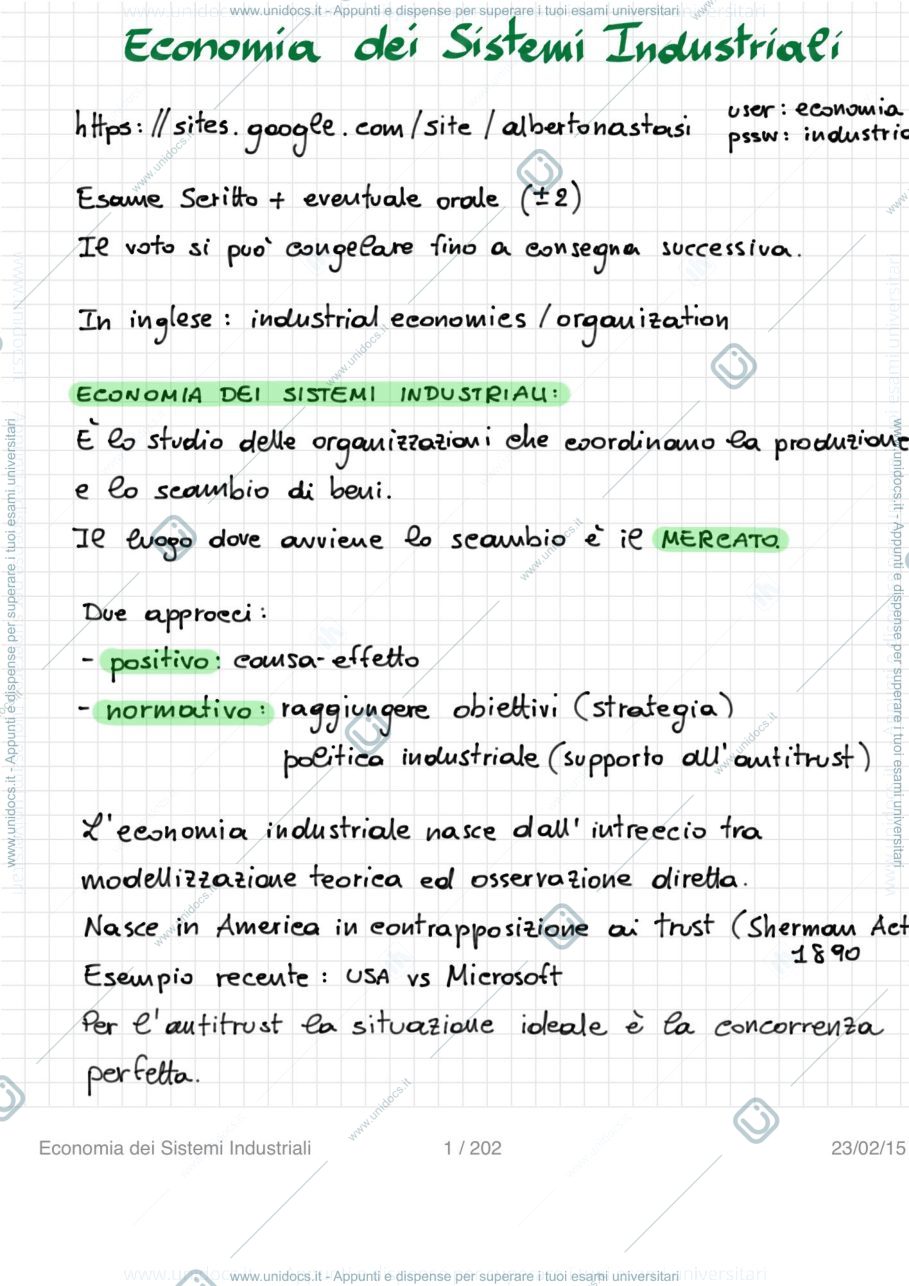 www.unidocs.it - Appunti e dispense per superare i tuoi esami universitari
Economia dei Sistemi Industriali
https://sites.google.com/site/albertonastasi
user: economia
pssw: industria
Esame Scritto + eventuale orale (±2)
Il voto si può congelare fino a consegna successiva.
In inglese: industrial economics / organization
ECONOMIA DEI SISTEMI INDUSTRIALI:
È lo studio delle organizzazioni che coordinano la produzione
e lo scambio di beni.
Il luogo dove avviene lo scambio è il MERCATO.
Due approcci:
- positivo: causa-effetto
- normativo: raggiungere obiettivi (strategia)
politica industriale (supporto all'antitrust)
L'economia industriale nasce dall'intreccio tra
modellizzazione teorica ed osservazione diretta.
Nasce in America in contrapposizione ai trust (Sherman Act
1890
Esempio recente: USA vs Microsoft
Per l'antitrust la situazione ideale è la concorrenza
perfetta.
Economia dei Sistemi Industriali
1 / 202
23/02/15
www.unidocs.it - Appunti e dispense per superare i tuoi esami universitari
www.unidocs.it - Appunti e dispense per superare i tuoi esami universitari
www.unidocs.it - Appunti e dispense per superare i tuoi esami universitari